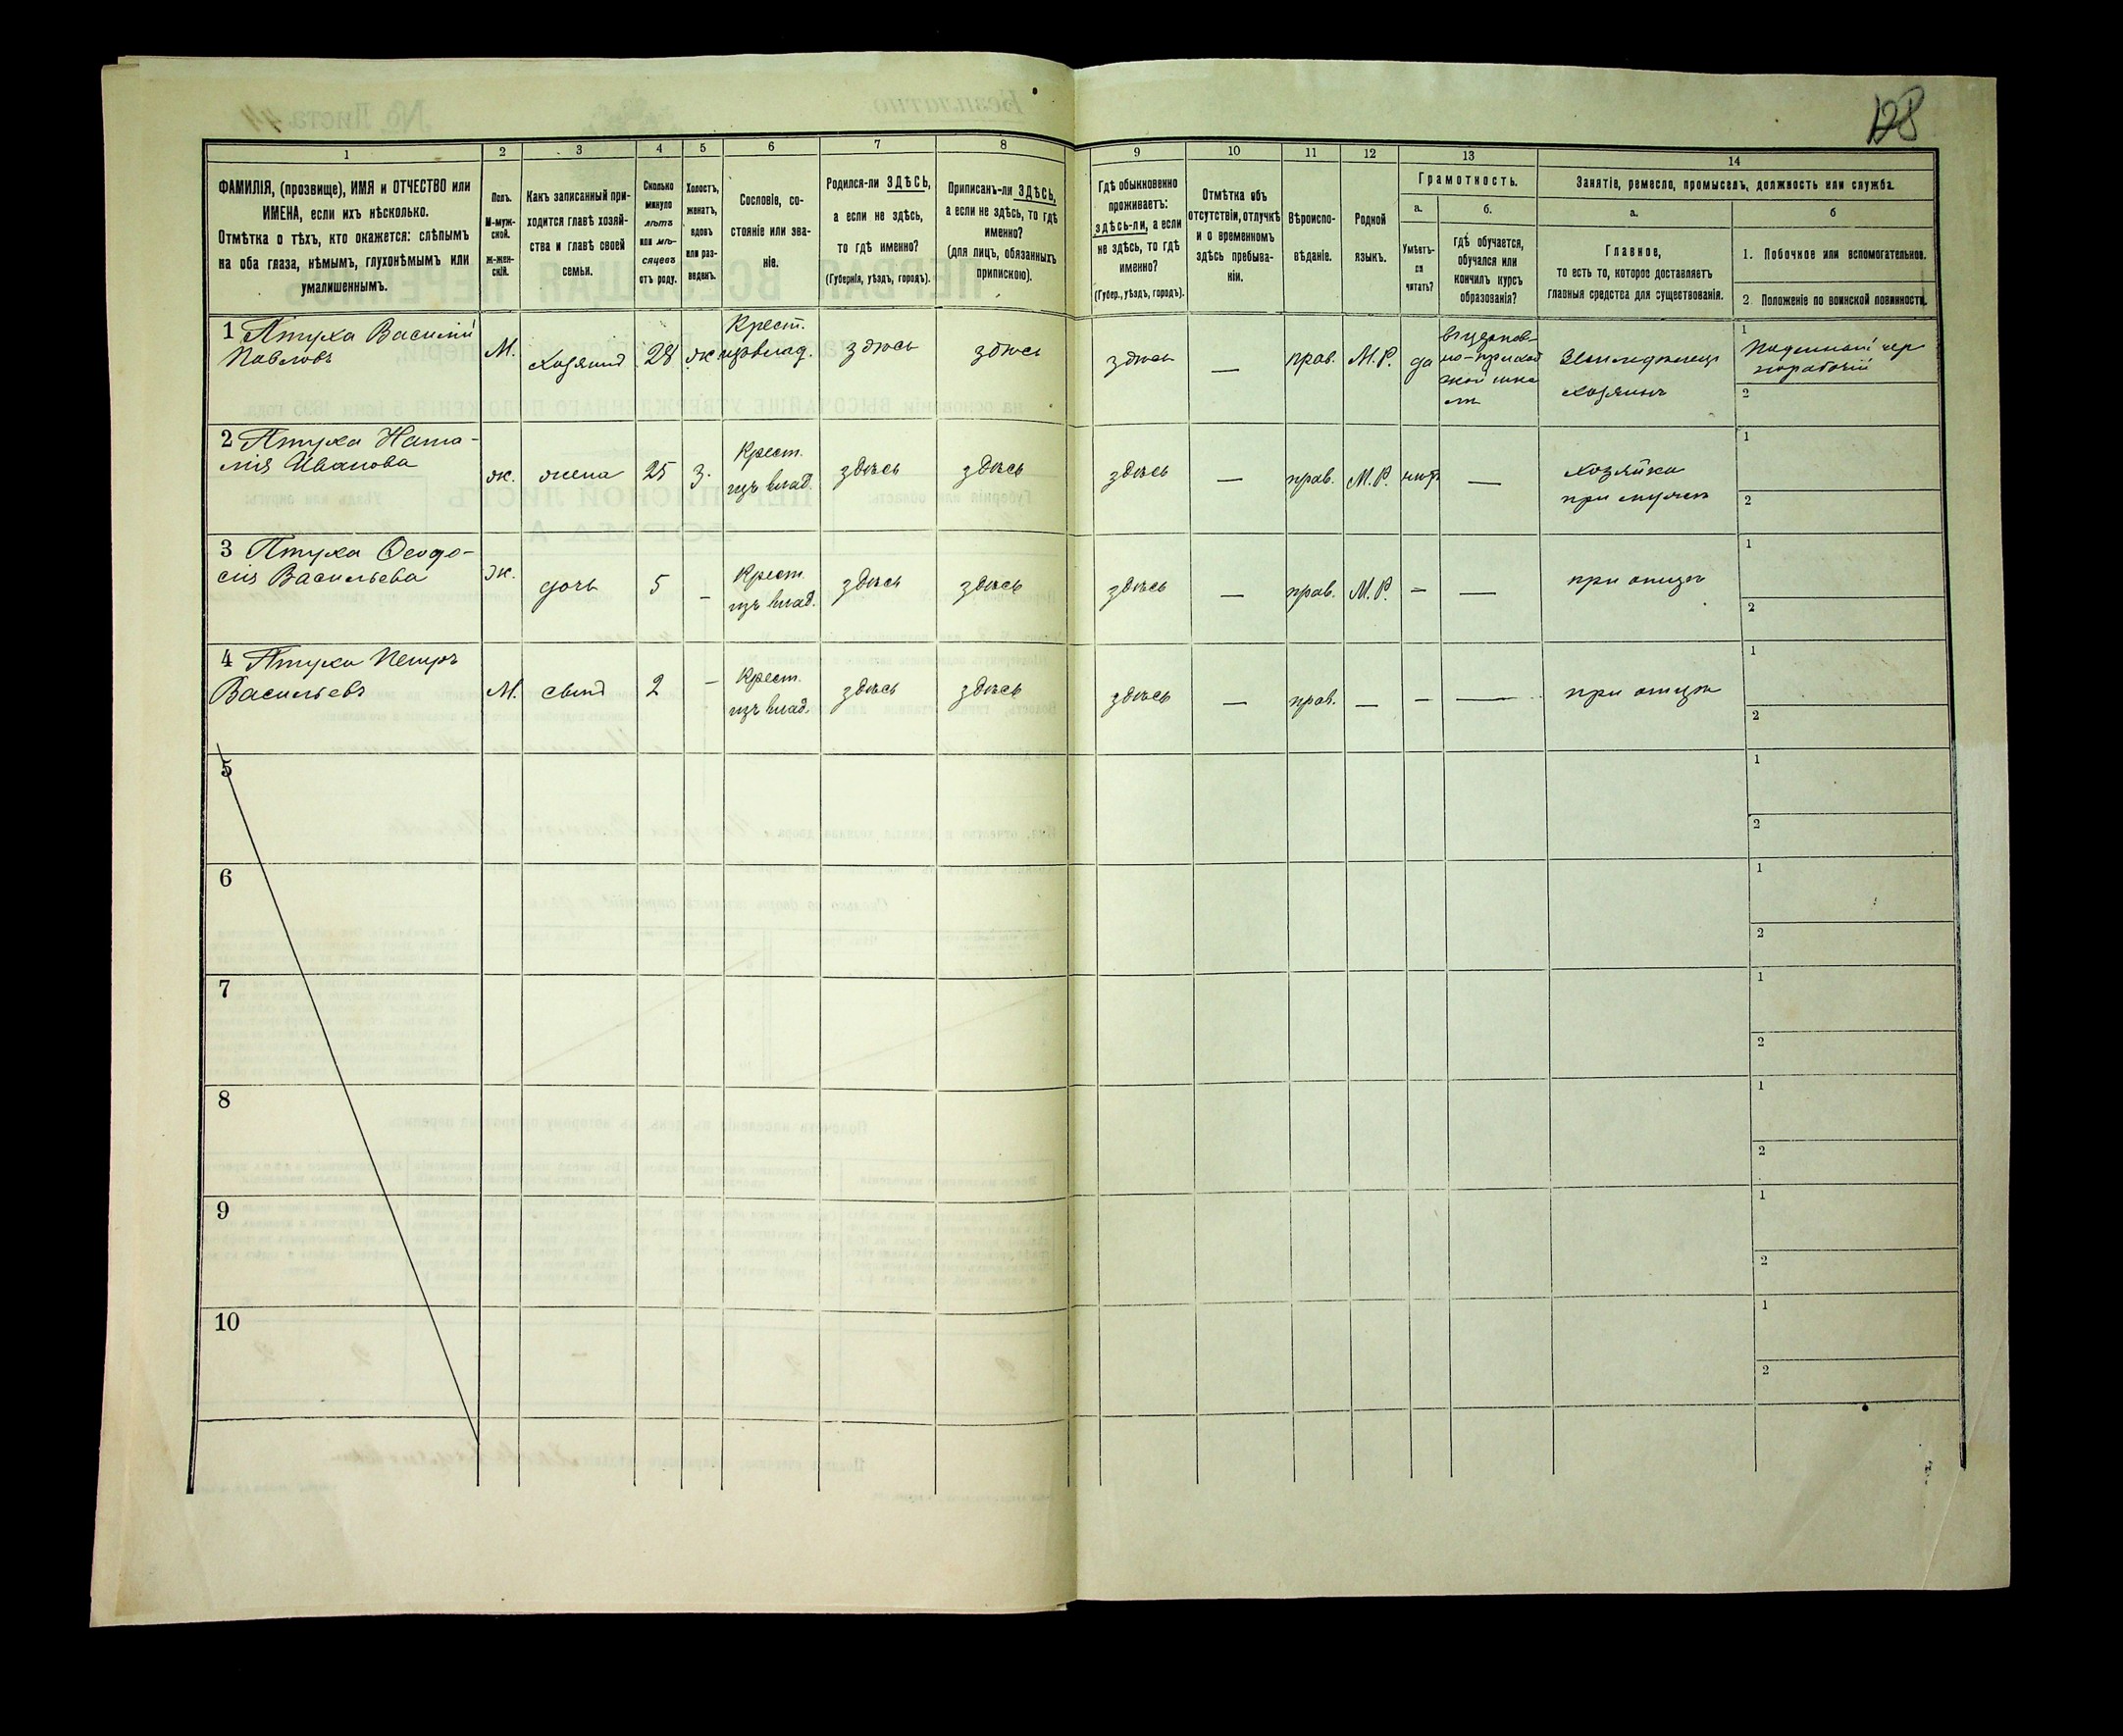 128
1 2 3 4 5 6 7 8 9 10 11 12 13 14
ФАМИЛІЯ, (прозвище), ИМЯ и ОТЧЕСТВО или
ИМЕНА, если ихъ нѣсколько.
Отмѣтка о тѣхъ, кто окажется: слѣпымъ
на оба глаза, нѣмымъ, глухонѣмымъ или
умалишеннымъ.
Полъ.
М-муж-
ской.
Ж-жен-
скій.
Какъ записанный при-
ходится главѣ хозяй-
ства и главѣ своей
семьи.
Сколько
минуло
лѣтъ
или мѣ-
сяцевъ
отъ роду.
Холостъ,
женатъ,
вдовъ
или раз-
веденъ.
Сословіе, со-
стояніе или зва-
ніе.
Родился-ли ЗДѢСЬ,
а если не здѣсь,
то гдѣ именно?
(Губернія, уѣздъ, городъ).
Приписанъ-ли ЗДѢСЬ,
а если не здѣсь, то гдѣ
именно?
(для лицъ, обязанныхъ
припискою).
Гдѣ обыкновенно
проживаетъ:
здѣсь-ли, а если
не здѣсь, то гдѣ
именно?
(Губер., уѣздъ, городъ).
Отмѣтка объ
отсутствіи, отлучкѣ
и о временномъ
здѣсь пребыва-
ніи.
Вѣроиспо-
вѣданіе.
Родной
языкъ.
Грамотность.
а.
Умѣетъ-
ли
читать?
б.
гдѣ обучается,
обучался или
кончилъ курсъ
образованія?
Занятіе, ремесло, промыселъ, должность или служба.
а.
Главное,
то есть то, которое доставляетъ
главныя средства для существованія.
б
1. Побочное или вспомогательное.
2. Положеніе по воинской повинности.
1 Птуха Василій
Павловъ
М.
Хозяинъ
28
ж
Крест.
изъ влад.
здѣсь
здѣсь
здѣсь
—
прав.
М.Р.
да
въ церков-
но-приход
ской шко
лѣ
Земледѣлецъ
хозяинъ
1 Поденный чер
норабочій
2
2 Птуха Ната-
лія Иванова
ж.
жена
25
з.
Крест.
изъ влад.
здѣсь
здѣсь
здѣсь
—
прав.
М.Р.
—
хозяйка
при мужѣ
1
2
3 Птуха Ѳеодо-
сія Васильева
ж.
дочь
5
–
Крест.
изъ влад.
здѣсь
здѣсь
здѣсь
—
прав.
М.Р.
–
—
при отцѣ
1
2
4 Птуха Петръ
Васильевъ
М.
сынъ
2
–
Крест.
изъ влад.
здѣсь
здѣсь
здѣсь
—
прав.
—
–
—
при отцѣ
1
2
5
1
2
6
1
2
7
1
2
8
1
2
9
1
2
10
1
2